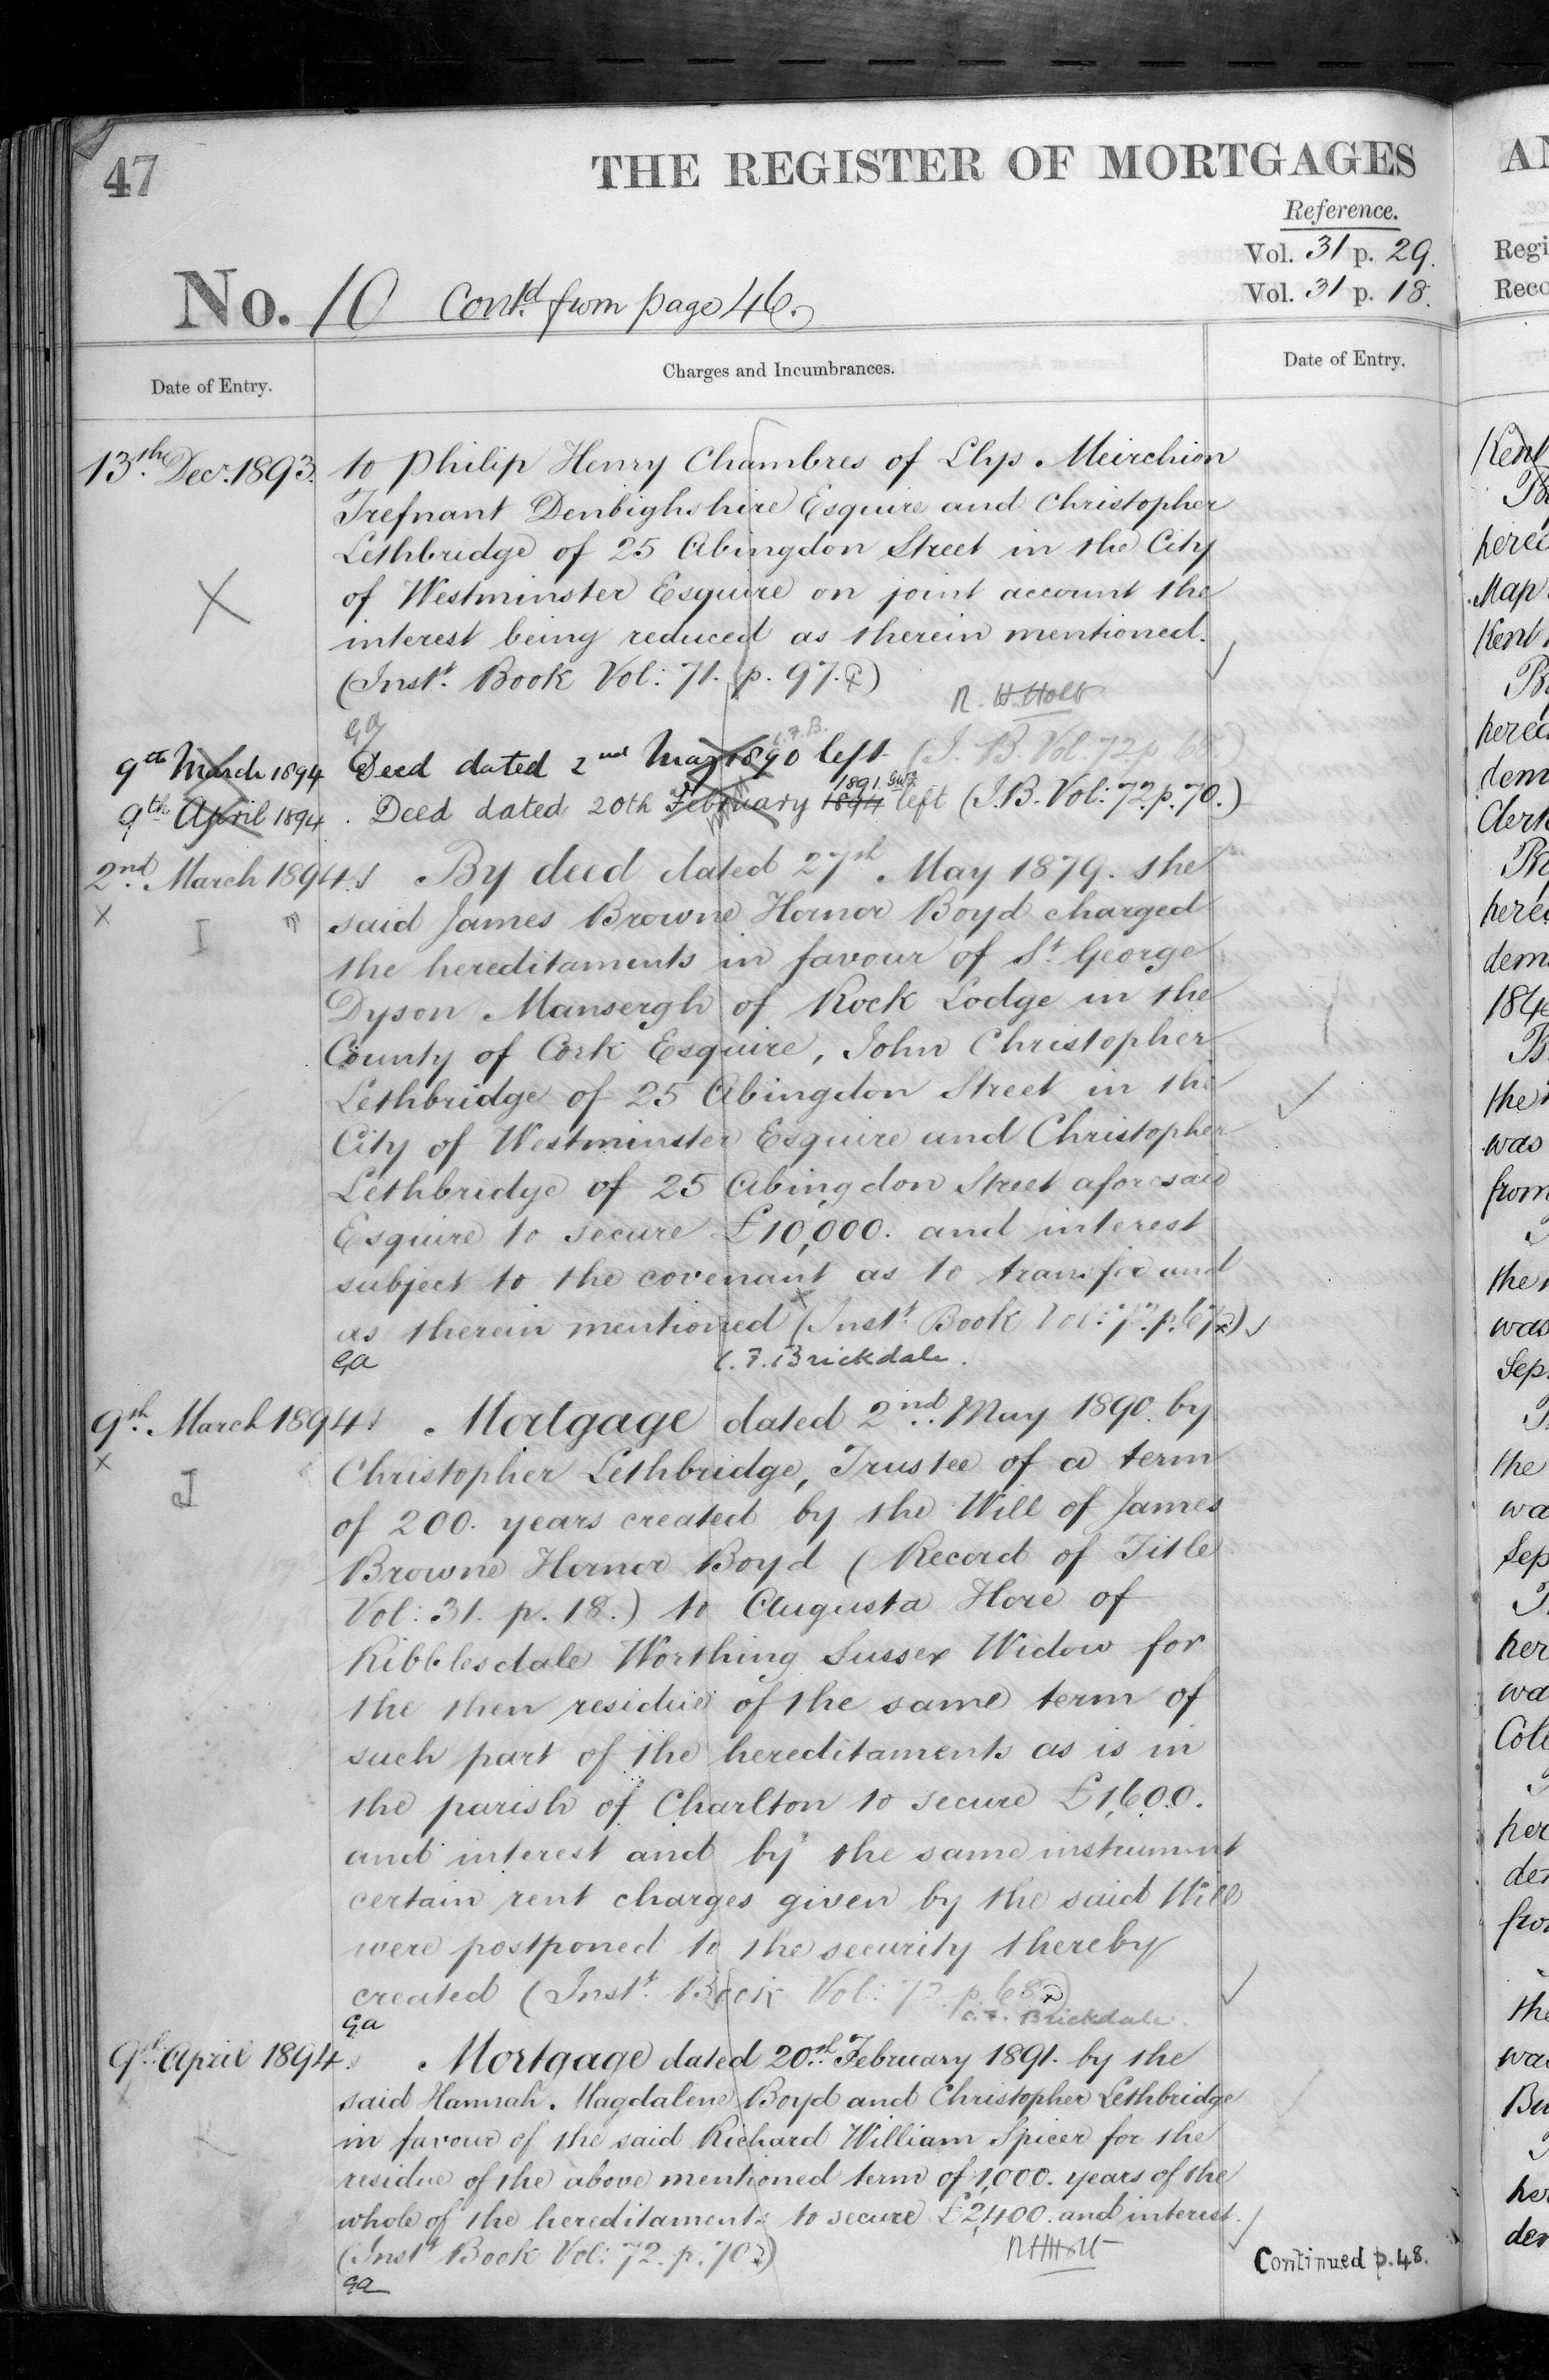 47
THE REGISTER OF MORTGAGES
Reference.
Vol. 31 p. 29.
Vol. 31 p. 18.
No. 10 Contd. from page 46.
Date of Entry.
Charges and Incumbrances.
Date of Entry.
13th Decr. 1893.
to Philip Henry Chambres of Llys Meirchion
Trefnant Denbighshire Esquire and Christopher
Lethbridge of 25 Abingdon Street in the City
of Westminster Esquire on joint account the
interest being reduced as therein mentioned.
(Instt. Book Vol: 71. p. 97.)
R. H. Holt
C.F.B.
9th March 1894 Deed dated 2nd May 1890 left (I. B. Vol. 72 p. 68)
1891 GWF
9th April 1894 . Deed dated 20th February 1894 left (I.B. Vol: 72. p. 70.)
2nd March 1894. By deed dated 27th May 1879. the
said James Browne Hornor Boyd charged
the hereditaments in favour of St George
Dyson Mansergh of Rock Lodge in the
County of Cork Esquire, John Christopher
Lethbridge of 25 Abingdon Street in the
City of Westminster Esquire and Christopher
Lethbridge of 25 Abingdon Street aforesaid
Esquire to secure £10,000. and interest
subject to the covenant as to transfer and
as therein mentioned (Instt. Book Vol: 72. p. 67)
Ga
C. F. Brickdale.
9th March 1894 Mortgage dated 2nd. May 1890. by
Christopher Lethbridge, Trustee of a term
of 200. years created by the Will of James
Browne Hornor Boyd (Record of Title
Vol: 31. p. 18.) to Augusta Hore of
Ribblesdale Worthing Sussex Widow for
the then residue of the same term of
such part of the hereditaments as is in
the parish of Charlton to secure £1,600.
and interest and by the same instrument
certain rent charges given by the said Will
were postponed to the security thereby
created (Instt. Book Vol: 72. p. 68)
Ga
C. F. Brickdale.
9th April 1894. Mortgage dated 20th. February 1891. by the
said Hannah Magdalene Boyd and Christopher Lethbridge
in favour of the said Richard William Spicer for the
residue of the above mentioned term of 1,000. years of the
whole of the hereditaments to secure £2,400. and interest.
(Instt Book Vol: 72. p. 70)
RHHolt
Ga
Continued p. 48.